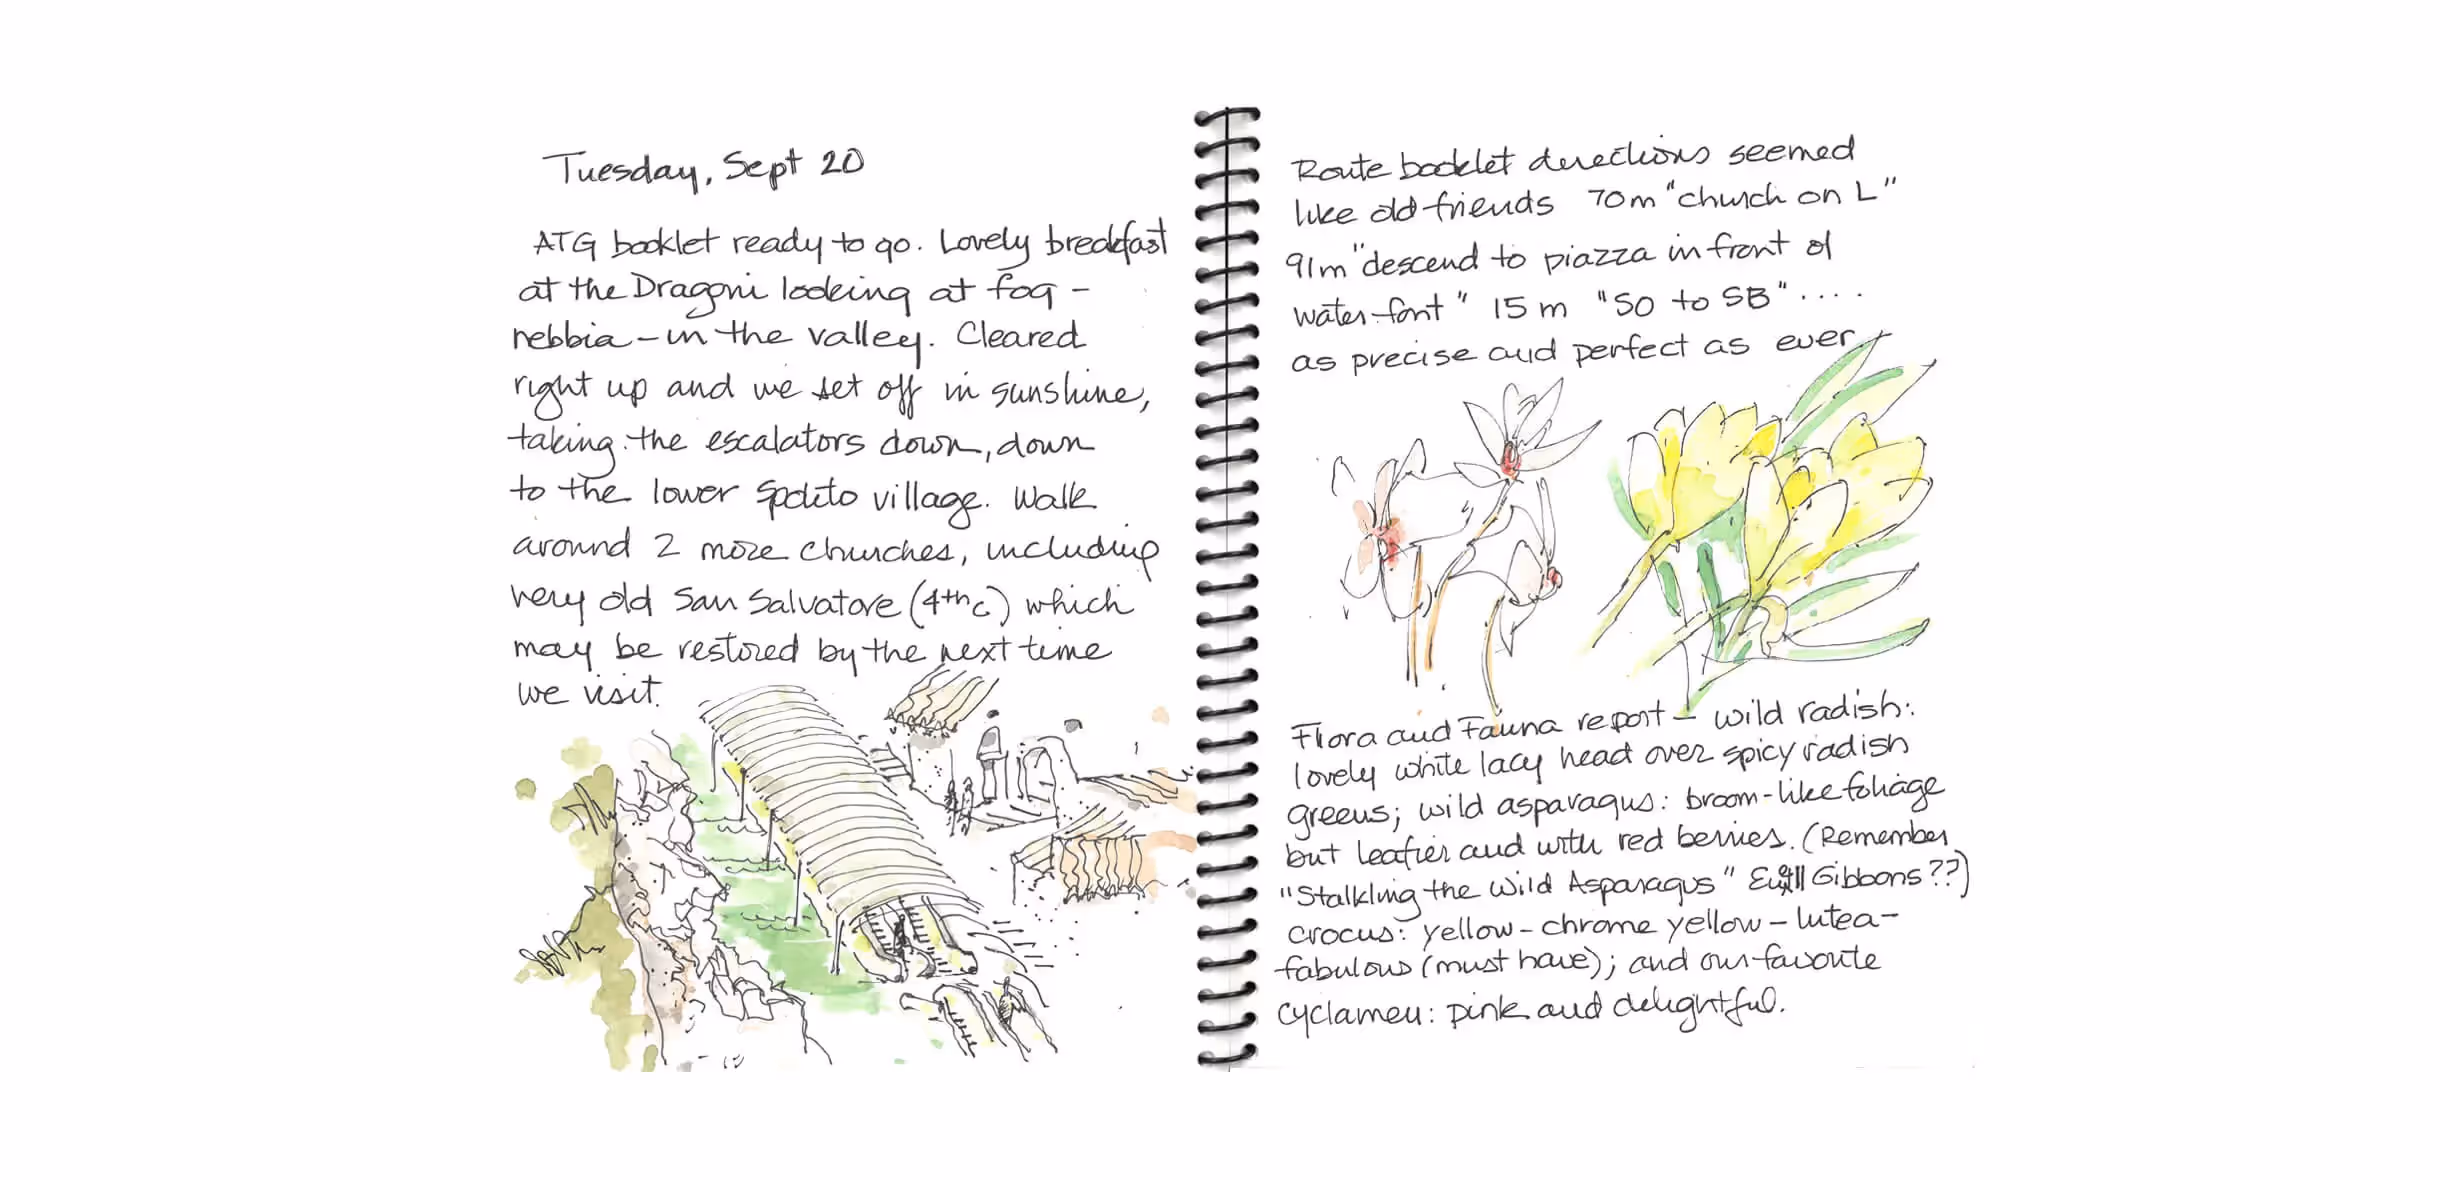 Tuesday, Sept 20
ATG booklet ready to go. Lovely breakfast
at the Dragoni looking at fog -
nebbia - in the valley. Cleared
right up and we set off in sunshine,
taking the escalators down, down
to the lower Spoleto village. Walk
around 2 more churches, including
very old San Salvatore (4th c) which
may be restored by the next time
we visit.
Route booklet directions seemed
like old friends 70m "church on L"
91m "descend to piazza in front of
water font" 15 m "SO to SB" ....
as precise and perfect as ever
Flora and Fauna report - wild radish:
lovely white lacy head over spicy radish
greens; wild asparagus: broom-like foliage
but leafier and with red berries. (Remember
"Stalkling the Wild Asparagus" Gibbons??)
crocus: yellow - chrome yellow - lutea -
fabulous (must have); and our favorite
cyclamen: pink and delightful.